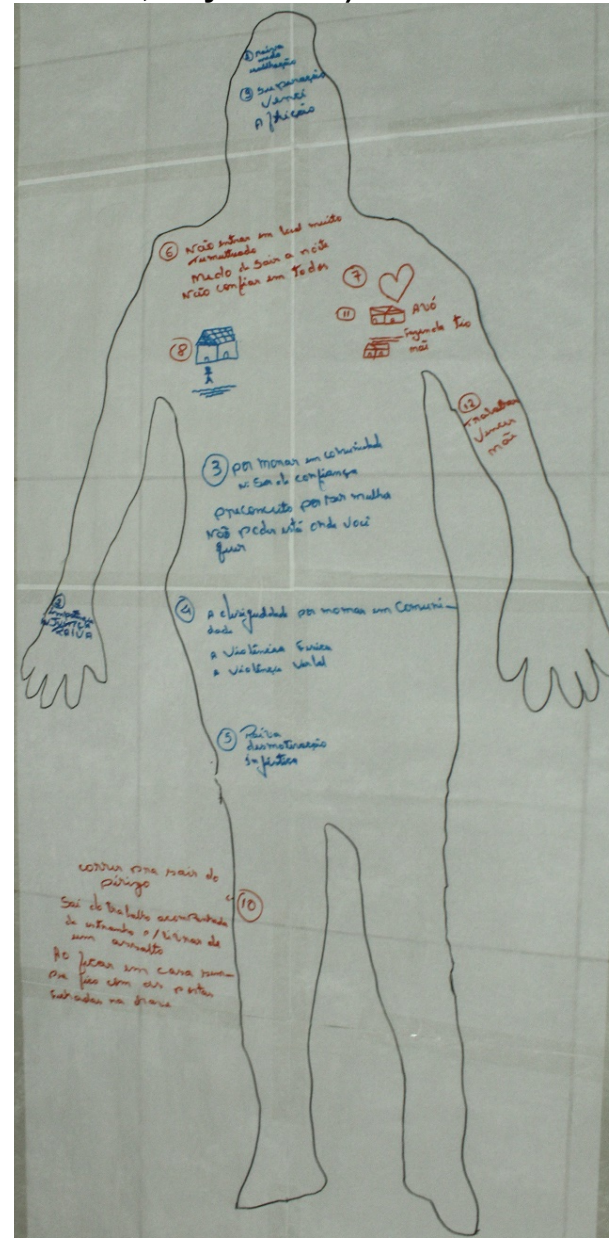 ① raiva
medo
humilhação
⑨ Superação
Venci
A
⑥ Não entrar em local muito
tumultuado
medo de sair a noite
Não confiar em todos
⑦
⑪ AVÓ
fazenda tio
mãe
⑧
⑫
Trabalhar
Vencer
mãe
③ por morar em comunidade
de confiança
preconceito por ser mulher
Não poder está onde você
quer
②
RAIVA
④ A desigualdade por morar em Comuni-
dade
A Violência Física
A Violência Verbal
⑤ Raiva
desmotivação
⑩
correr pra sair do
pirigo
Sai do trabalho acompanhada
de estranho p/ livrar de
um assalto
Ao ficar em casa sem-
pre fico com as portas
fechadas na chave